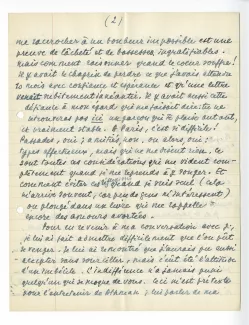 (2)
me raccrocher à un bonheur impossible est une
preuve de lâcheté et de bassesse injustifiables.
Mais comment raisonner quand le cœur souffre !
Il y avait le chagrin de perdre ce que j'avais attendu
10 mois avec confiance et espérance et qu'une lettre
venait subitement d'anéantir. Il y avait aussi cette
défiance à mon égard qui me faisait écrire ne
retrouver pas ici un garçon qui te plaira autant,
et vraiment stable. À Paris, c'est si difficile !
Passades, oui ; amitiés non, ou alors oui :
affection, mais qui ne me disent rien. Ce
sont toutes ces considérations qui me vident com-
plètement quand je me reprends à y songer. Et
comment éviter cela quand je suis seul (cela
m'arrive souvent, car peu de gens m'intéressent)
ou plongé dans un livre qui me rappelle
encore des amours avortées.
Pour en revenir à ma conversation avec J.,
je lui ai fait admettre difficilement que l'on pût
se venger. Je lui ai rétorqué que j'aurais pu aussi
accepter sans sourciller, mais c'eût été l'attitude
d'un imbécile. L'indifférence n'a jamais puni
quelqu'un qui se moque de vous. Ceci m'est prétexte
pour t'entretenir de ; lui parler de ma